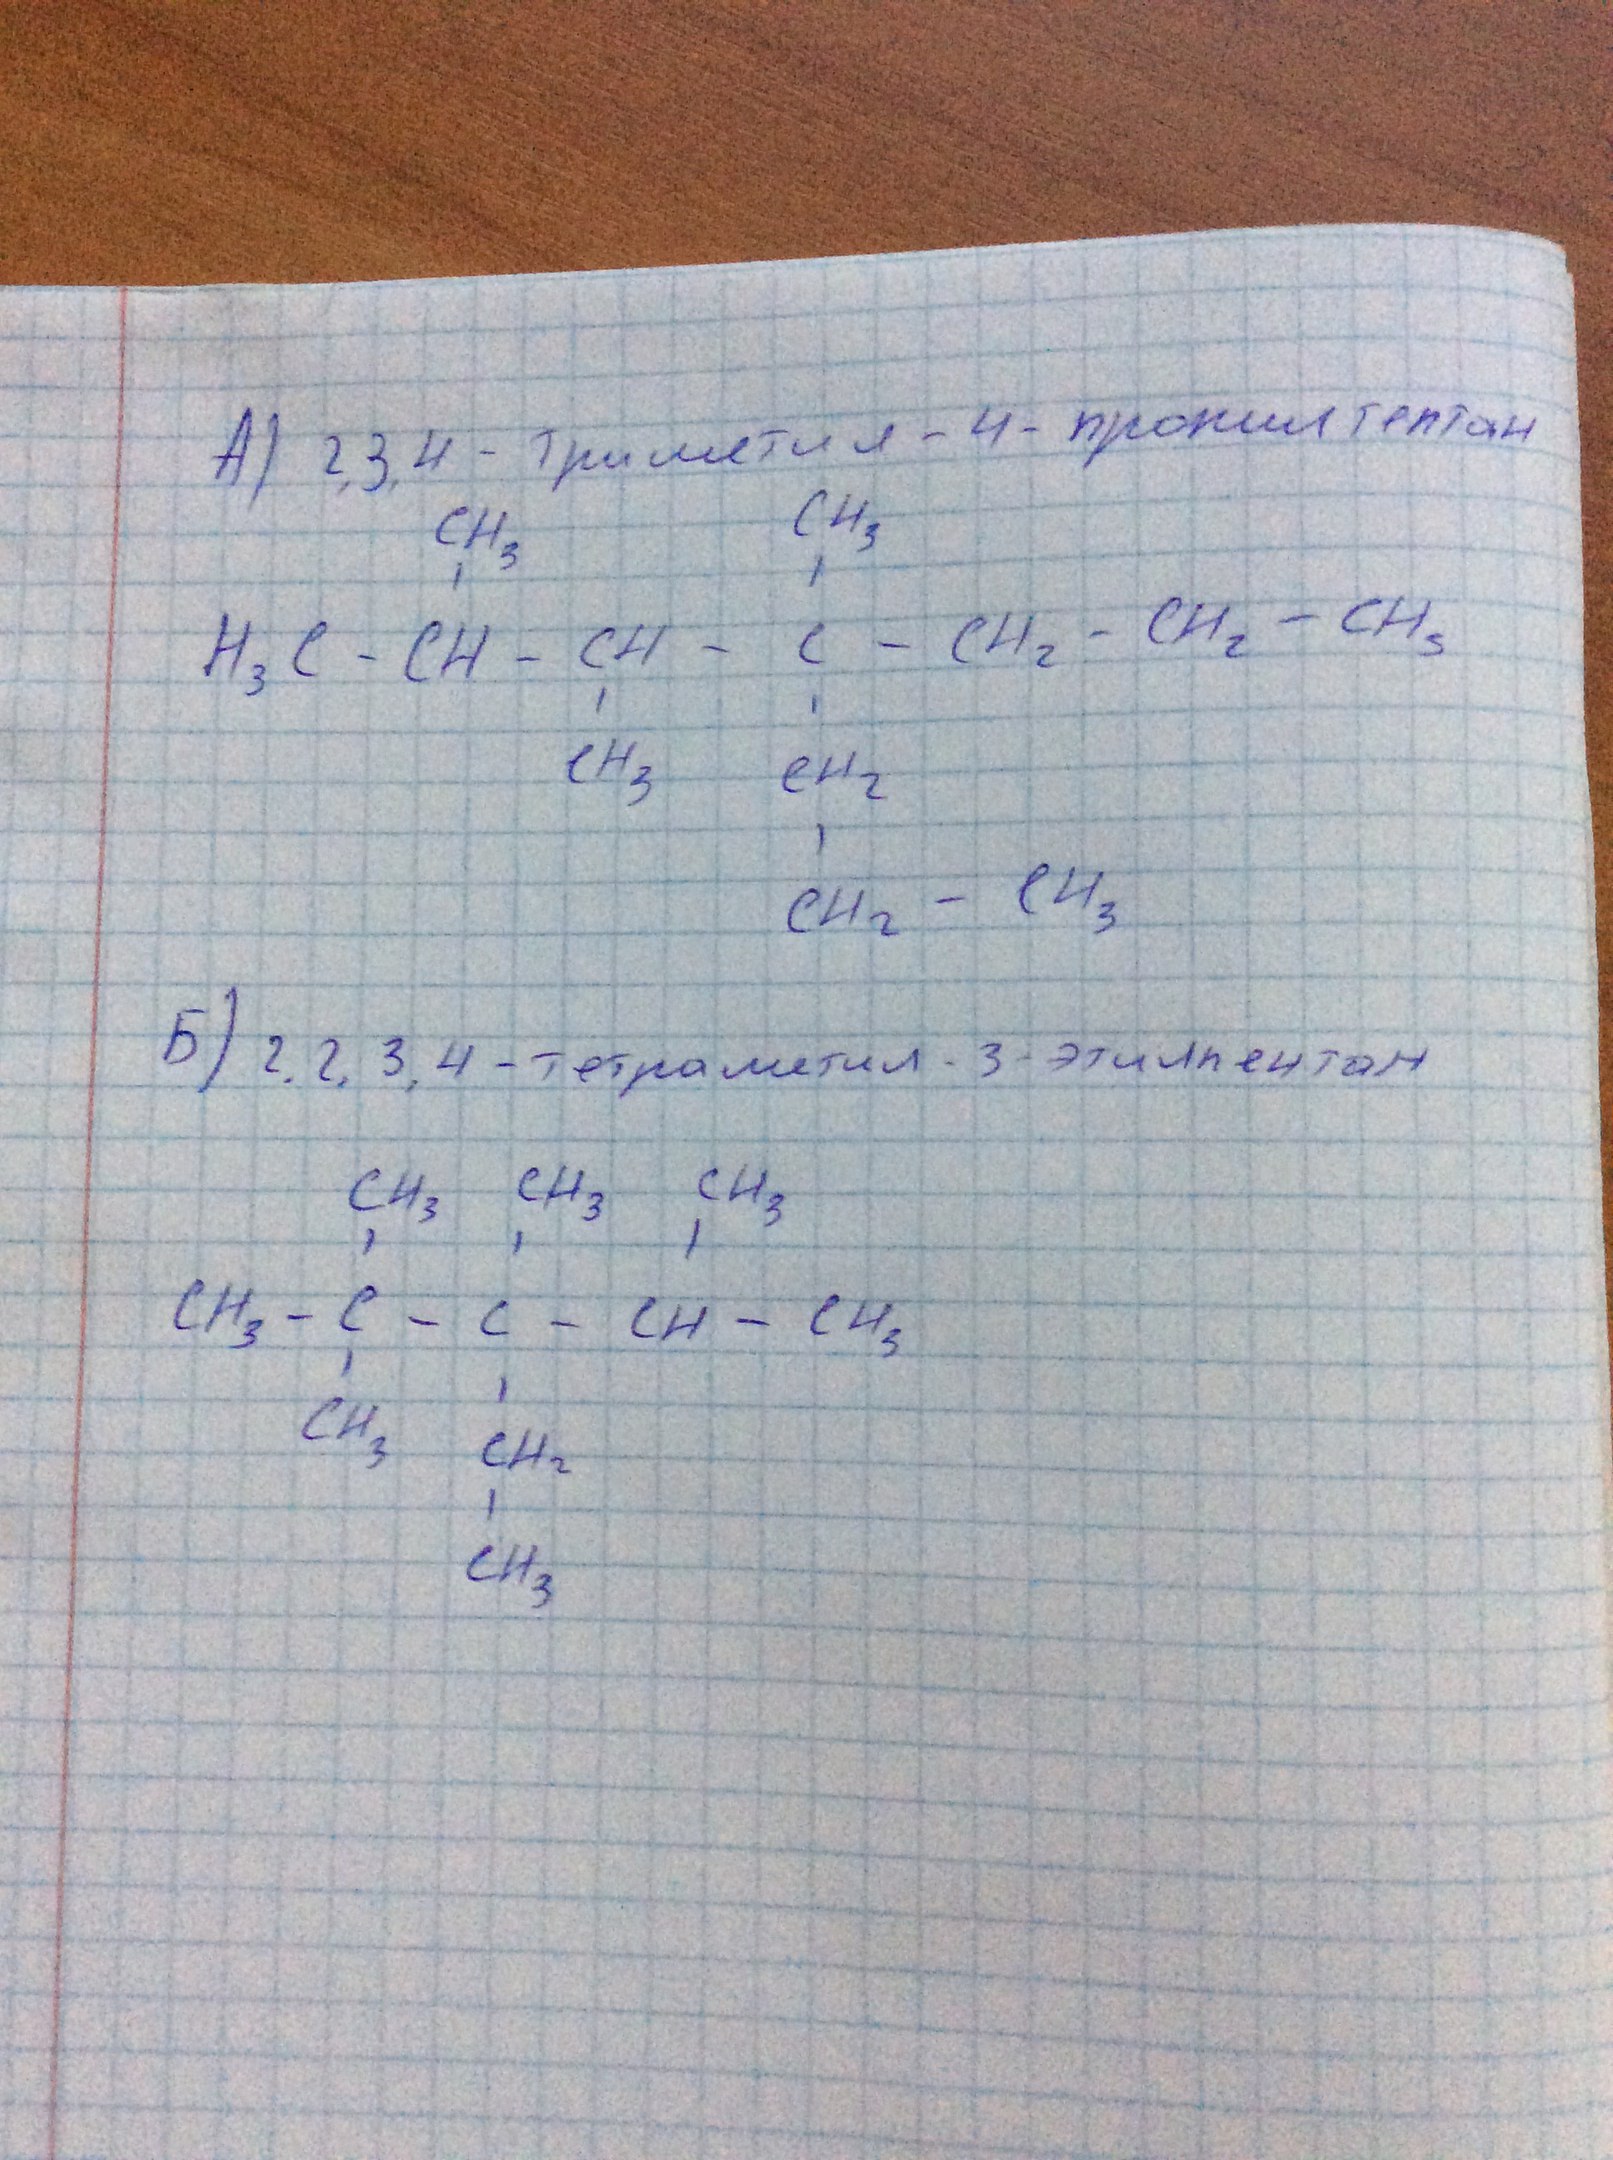 А) 2,3,4 - триметил - 4 - пропилгептан
CH3 CH3
H3C - CH - CH - C - CH2 - CH2 - CH3
CH3 CH2
CH2 - CH3
Б) 2,2,3,4 - тетраметил - 3 - этилпентан
CH3 CH3 CH3
CH3 - C - C - CH - CH3
CH3 CH2
CH3